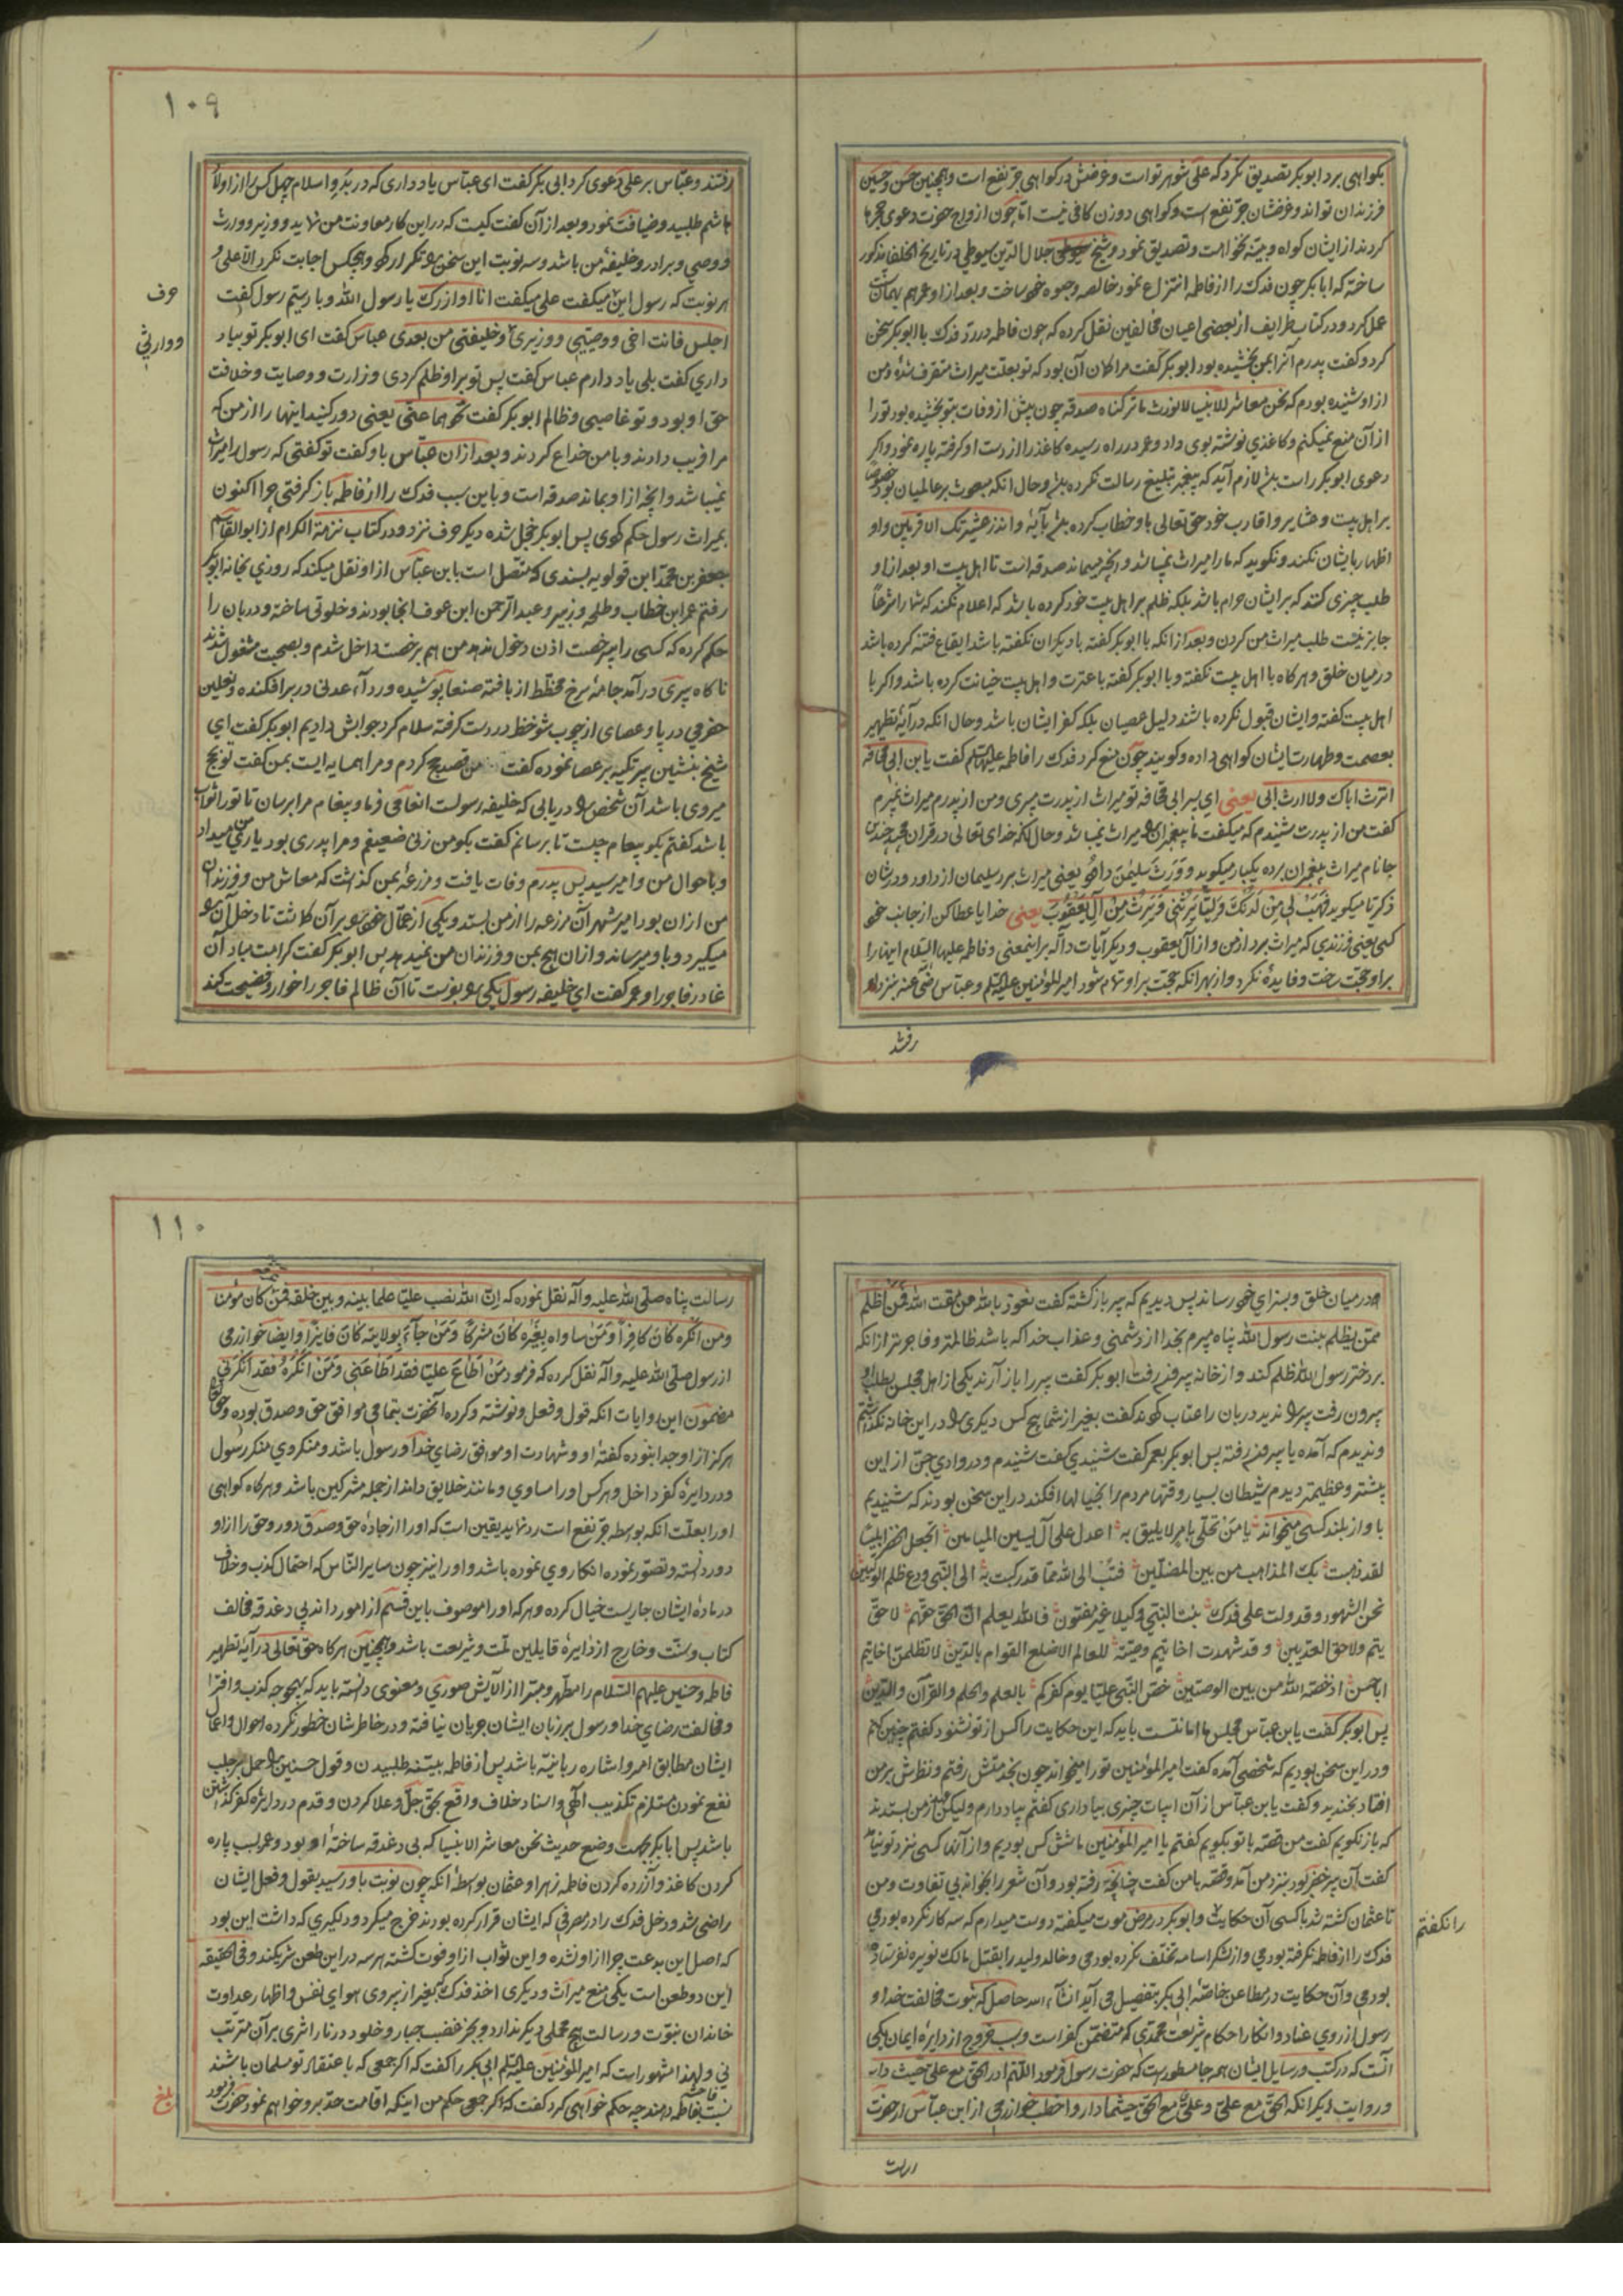 بکواهی برد ابوبکر تصدیق نکرد که علی شوهر تو است و غرضش در کواهی جر نفع است و همچنین حسن و حسین
فرزندان تواند و غرضشان جر نفع است و کواهی دو زن کافی نیست اما چون ازواج حضرت دعوی حجرها
کردند از ایشان کواه و بینه نخواست و تصدیق نمود و شیخ جلال الدین سیوطی در تاریخ الخلفا مذکور
ساخته که ابابکر چون فدک را از فاطمه انتزاع نمود خالصه وجوه خود ساخت و بعد از او عمر هم بهمان
عمل کرد و در کتاب طرایف از بعضی اعیان مخالفین نقل کرده که چون فاطمه در رد فدک با ابوبکر سخن
کرد و کفت پدرم آنرا بمن بخشیده بود ابوبکر کفت مرا کمان آن بود که تو بعلت میراث متصرف شدهٔ و من
از او شنیده بودم که نحن معاشر الانبیا لانورث ماترکناه صدقه چون پیش از وفات بتو بخشیده بود تو را
از آن منع نمیکنم و کاغذی نوشته بوی داد و عمر در راه رسیده کاغذ را از دست او کرفته پاره نمود و اکر
دعوی ابوبکر راست باشد لازم آید که پیغمبر تبلیغ رسالت نکرده باشد و حال انکه مبعوث بر عالمیان بود خصوصا
بر اهل بیت و عشایر و اقارب خود حق تعالی باو خطاب کرده باشد بآیهٔ و انذر عشیرتک الاقربین و او
اظهار بایشان نکند و نکوید که ما را میراث نمیباشد و انچه میماند صدقه است تا اهل بیت او بعد از او
طلب چیزی کنند که بر ایشان حرام باشد بلکه ظلم بر اهل بیت خود کرده باشد که اعلام نکند که شما را شرعاً
جایز نیست طلب میراث من کردن و بعد از انکه با ابوبکر کفته با دیکران نکفته باشد ایقاع فتنه کرده باشد
در میان خلق و هرکاه با اهل بیت نکفته و با ابوبکر کفته با عترت و اهل بیت خیانت کرده باشد و اکر با
اهل بیت کفته و ایشان قبول نکرده باشند دلیل عصیان بلکه کفر ایشان باشد و حال انکه در آیهٔ تطهیر
بعصمت و طهارت ایشان کواهی داده و کویند چون منع کرد فدک را فاطمه علیها السلام کفت یا بن ابی قحافه
اترث اباک و لا ارث ابی یعنی ای پسر ابی قحافه تو میراث از پدرت میبری و من از پدرم میراث نمیبرم
کفت من از پدرت شنیدم که میکفت ما پیغمبران را میراث نمیباشد و حال انکه خدای تعالی در قران مجید چندین
جا نام میراث پیغمبران برده یکبار میکوید و ورث سلیمن داود یعنی میراث برد سلیمان از داود و در شان
ذکریا میکوید فهب لی من لدنک ولیا یرثنی و یرث من آل یعقوب یعنی خدایا عطا کن از جانب خود
کسی یعنی فرزندی که میراث برد از من و از آل یعقوب و دیکر آیات داله بر اینمعنی و فاطمه علیها السلام اینها را
بر او حجت ساخت و فایده نکرد و از بهر انکه حجت بر او تمام شود امیرالمؤمنین علیه السلام و عباس رضی عنه بنزد او
رفتند
۱۰۹
رفتند و عباس بر علی دعوی کرد ابی بکر کفت ای عباس یاد داری که در بدو اسلام چهل کس را از اولاد
هاشم طلبید و ضیافت نمود و بعد از آن کفت کیست که در این کار معاونت من نماید و وزیر و وارث
و وصی و برادر و خلیفهٔ من باشد و سه نوبت این سخن را تکرار کرد و هیچکس اجابت نکرد الا علی و
هر نوبت که رسول این میکفت علی میکفت انا اوازرک یا رسول الله و بار سیم رسول کفت
حرف
اجلس فانت اخی و وصیی و وزیری و خلیفتی من بعدی عباس کفت ای ابوبکر تو بیاد
و وارثی
داری کفت بلی یاد دارم عباس کفت پس تو بر او ظلم کردی وزارت و وصایت و خلافت
حق او بود و تو غاصبی و ظالم ابوبکر کفت نحوهما عنی یعنی دور کنید اینها را از من که
مرا فریب دادند و با من خداع کردند و بعد از ان عباس باو کفت تو کفتی که رسول را میراث
نمیباشد و انچه از او بماند صدقه است و باین سبب فدک را از فاطمه باز کرفتی چرا اکنون
بمیراث رسول حکم کردی پس ابوبکر خجل شده دیکر حرف نزد و در کتاب نزهة الکرام از ابوالقاسم
جعفر بن محمد ابن قولویه بسندی که متصل است بابن عباس از او نقل میکند که روزی بخانه ابوبکر
رفتم عمر ابن خطاب و طلحه و زبیر و عبدالرحمن ابن عوف انجا بودند و خلوتی ساخته و دربان را
حکم کرده که کسی را بیرخصت اذن دخول ندهد من هم برخصت داخل شدم و بصحبت مشغول شدند
ناکاه پیری در آمد جامهٔ سرخ مخطط از بافته صنعا پوشیده و ردآء عدنی در بر افکنده و نعلین
حضرمی در پا و عصای از چوب شوخط در دست کرفته سلام کرد جوابش دادیم ابوبکر کفت ای
شیخ بنشین پیر تکیه بر عصا نموده کفت من قصد حج کردم و مرا همسایه ایست بمن کفت تو بحج
میروی باشد آن شخص را دریابی که خلیفه رسولست انعامی فرما و پیغام مرا برسان تا تو را ثواب
باشد کفتم بکو پیغام چیست تا برسانم کفت بکو من زنی ضعیفم و مرا پدری بود یاری من میداد
و باحوال من وا میرسید پس پدرم وفات یافت و مزرعهٔ بمن کذاشت که معاش من و فرزندان
من از ان بود امیر شهر آن مزرعه را از من بستد و یکی از عمال خود را بر آن کماشت تا دخل آن را
میکیرد و باو میرساند و از ان هیچ بمن و فرزندان من نمیدهد پس ابوبکر کفت کرامت مباد آن
غادر فاجر را و عمر کفت ای خلیفه رسول یکی را بفرست تا آن ظالم فاجر را خوار و فضیحت کند
و در میان خلق و بسزای خود رساند پس دیدیم که پیر باز کشته کفت نعوذ بالله من مقت الله فمن اظلم
ممن یظلم بنت رسول الله پناه میبرم بخدا از دشمنی و عذاب خدا که باشد ظالمتر و فاجرتر از انکه
بر دختر رسول الله ظلم کند و از خانه بیرون رفت ابوبکر کفت پیر را باز آرند یکی از اهل مجلس بطلب او
بیرون رفت پیر را ندید دربان را عتاب کردند کفت بغیر از شما هیچ کس دیکری را در این خانه نکذاشتم
و ندیدم که آمده یا بیرون رفته پس ابوبکر بعمر کفت شنیدی کفت شنیدم و در وادی جن از این
بیشتر و عظیمتر دیدم شیطان بسیار وقتها مردم را بخیالها افکند در این سخن بودند که شنیدیم
باواز بلند کسی میخواند یا من تحلی بامر لایلیق به اعدل علی آل یاسین المیامین اتجعل الخضر ابلیسا
لقد ذهبت بک المذاهب من بین المضلین فتب الی الله مما قد رکبت به الی النبی و دع ظلم الوصیین
نحن الشهود و قد دلت علی فدک بنت النبی وکیلا غیر مفتون فالله یعلم ان الحق حقهم لا حق
تیم و لا حق العدیین و قد شهدت اخا تیم وصیته للعالم الاضلع القوام بالدین لا تظلمن اخا تیم
اباحسن اذ خصه الله من بین الوصیین خص النبی علیا یوم کفرکم بالعلم و الحلم و القرآن و الدین
پس ابوبکر کفت یابن عباس مجلس ما امانتست باید که این حکایت را کس از تو نشنود کفتم چنین کنم
و در این سخن بودیم که شخصی آمده کفت امیرالمؤمنین تو را میخواند چون بخدمتش رفتم و نظرش بر من
افتاد بخندید و کفت یابن عباس از آن ابیات چیزی بیاد داری کفتم بیاد دارم ولیکن عهد از من بستدند
که باز نکویم کفت من قصه با تو بکویم کفتم یا امیرالمؤمنین ما شش کس بودیم و از آنها کسی نزد تو نیامد
کفت آن پیر خضر بود بنزد من آمد و قصه با من کفت چنانچه رفته بود و آن شعر را بخواند بی تفاوت و من
تا عثمان کشته شد با کسی آن حکایت و ابوبکر در مرض موت میکفته دوست میدارم که سه کار نکرده بودمی
را نکفتم
فدک را از فاطمه نکرفته بودمی و از لشکر اسامه تخلف نکرده بودمی و خالد ولید را بقتل مالک نویره نفرستاده
بودمی و آن حکایت در مطاعن خاصهٔ ابی بکر بتفصیل می آید انشآء الله حاصل که ثبوت مخالفت خدا و
رسول از روی عناد و انکار احکام شریعت محمدی که متضمن کفر است و سبب خروج از دایرهٔ ایمان یکی
آنست که در کتب و رسایل ایشان همه جا مسطور است که حضرت رسول فرمود اللهم ادر الحق مع علی حیث دار
و روایت دیکر انکه الحق مع علی و علی مع الحق حیثما دار و اخطب خوارزمی از ابن عباس از حضرت
رسالت
۱۱۰
رسالت پناه صلی الله علیه و آله نقل نموده که ان الله نصب علیا علما بینه و بین خلقه فمن کان مؤمنا
و من انکره کان کافرا و من ساواه بغیره کان مشرکا و من جآء بولایته کان فایزا و ایضا خوارزمی
از رسول صلی الله علیه و آله نقل کرده که فرمود من اطاع علیا فقد اطاعنی و من انکره فقد انکرنی
مضمون این روایات انکه قول و فعل و نوشته و کرده آنحضرت بتمامی موافق حق و صدق بوده و حق
هرکز از او جدا نبوده کفتهٔ او و شهادت او موافق رضای خدا و رسول باشد و منکر وی منکر رسول
و در دایرهٔ کفر داخل و هر کس او را مساوی و مانند خلایق داند از جمله مشرکین باشد و هرکاه کواهی
او را بعلت انکه بواسطه جر نفع است رد نماید یقین است که او را از جادهٔ حق و صدق دور و حق را از او
دور دانسته و تصور نموده انکار وی نموده باشد و او را نیز چون سایر الناس که احتمال کذب و خلاف
در مادهٔ ایشان جاریست خیال کرده و هر که او را موصوف باین قسم از امور داند بی دغدغه مخالف
کتاب و سنت و خارج از دایرهٔ قایلین ملت و شریعت باشد و همچنین هرکاه حق تعالی در آیه تطهیر
فاطمه و حسنین علیهم السلام را مطهر و مبرا از آلایش صوری و معنوی دانسته باید که بهیچ وجه کذب و افترا
و مخالفت رضای خدا و رسول بر زبان ایشان جریان نیافته و در خاطرشان خطور نکرده احوال و اعمال
ایشان مطابق امر و اشاره ربانیه باشد پس از فاطمه بینه طلبیدن و قول حسنین را حمل بر جلب
نفع نمودن مستلزم تکذیب الهی و اسناد خلاف واقع بحق جل و علا کردن و قدم در دایرهٔ کفر کذاشتن
باشد پس ابابکر بجهت وضع حدیث نحن معاشر الانبیا که بی دغدغه ساختهٔ او بود و عمر بسبب پاره
کردن کاغذ و آزرده کردن فاطمه زهرا و عثمان بواسطهٔ انکه چون نوبت باو رسید بقول و فعل ایشان
راضی شد و دخل فدک را در مصرفی که ایشان قرار کرده بودند خرج میکرد و دلکیری که داشت این بود
که اصل این بدعت چرا از او نشده و این ثواب از او فوت کشته هر سه در این طعن شریکند و فی الحقیقه
این دو طعن است یکی منع میراث و دیکری اخذ فدک که بغیر از پیروی هوای نفس و اظهار عداوت
خاندان نبوت و رسالت هیچ محملی دیکر ندارد و بجز غضب جبار و خلود در نار اثری بر آن مترتب
نی و لهذا مشهور است که امیرالمؤمنین علیه السلام ابی بکر را کفت که اکر جمعی که باعتقاد تو مسلمان باشند
نسبت فاحشه بفاطمه دهند چه حکم خواهی کرد کفت که اکر جمعی حکم من اینکه اقامت حد بر او خواهم نمود حضرت فرمود
بلغ